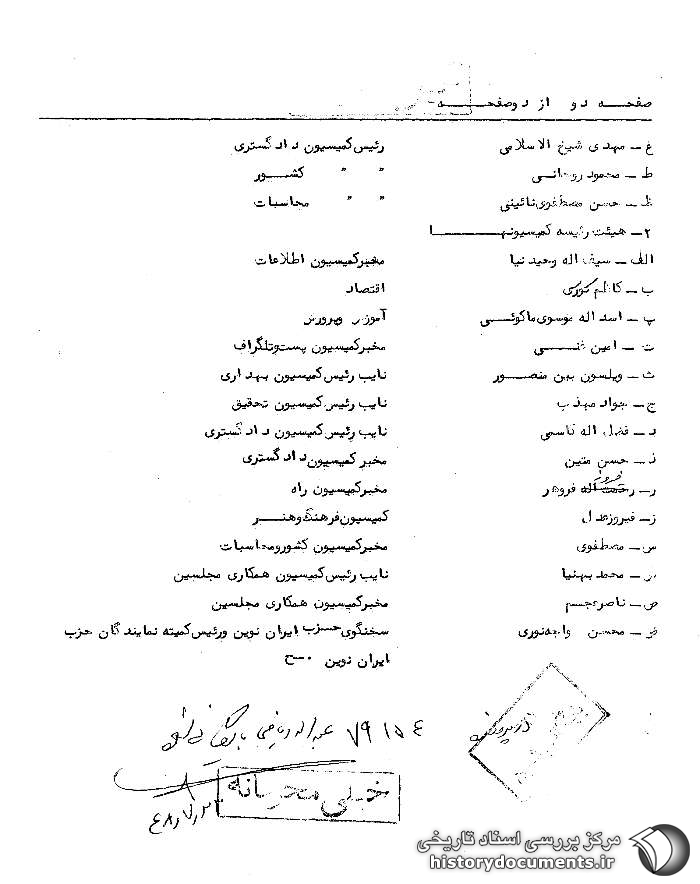 صفحه دو از دوصفحه
غ - مهدی شیخ الاسلامی رئیس کمیسیون دادگستری
ط - محمود روحانی " " کشور
ظ - حسن مصطفوی نائینی " " محاسبات
۲- هیئت رئیسه کمیسیونها
الف - سیف اله وحیدنیا مخبر کمیسیون اطلاعات
ب - کاظم کورس اقتصاد
پ - اسداله موسوی ماکوئی آموزش وپرورش
ت - امین غنی مخبر کمیسیون پست وتلگراف
ث - ویلسون بیت منصور نایب رئیس کمیسیون بهداری
ج - جواد مهذب نایب رئیس کمیسیون تحقیق
د - فضل اله قاسمی نایب رئیس کمیسیون دادگستری
ذ - حسن متین مخبر کمیسیون دادگستری
ر - فروهر مخبر کمیسیون راه
ز - فیروز عدل کمیسیون فرهنگ وهنر
س - مصطفوی مخبر کمیسیون کشورومحاسبات
محمد بهنیا نایب رئیس کمیسیون همکاری مجلسین
ص - ناصر مخبر کمیسیون همکاری مجلسین
ض - محسن واجه نوری سخنگوی حزب ایران نوین ورئیس کمیته نمایندگان حزب
ایران نوین
۷۹۱۵۴ عبداله ریاضی
خیلی محرمانه
مرکز بررسی اسناد تاریخی
historydocuments.ir